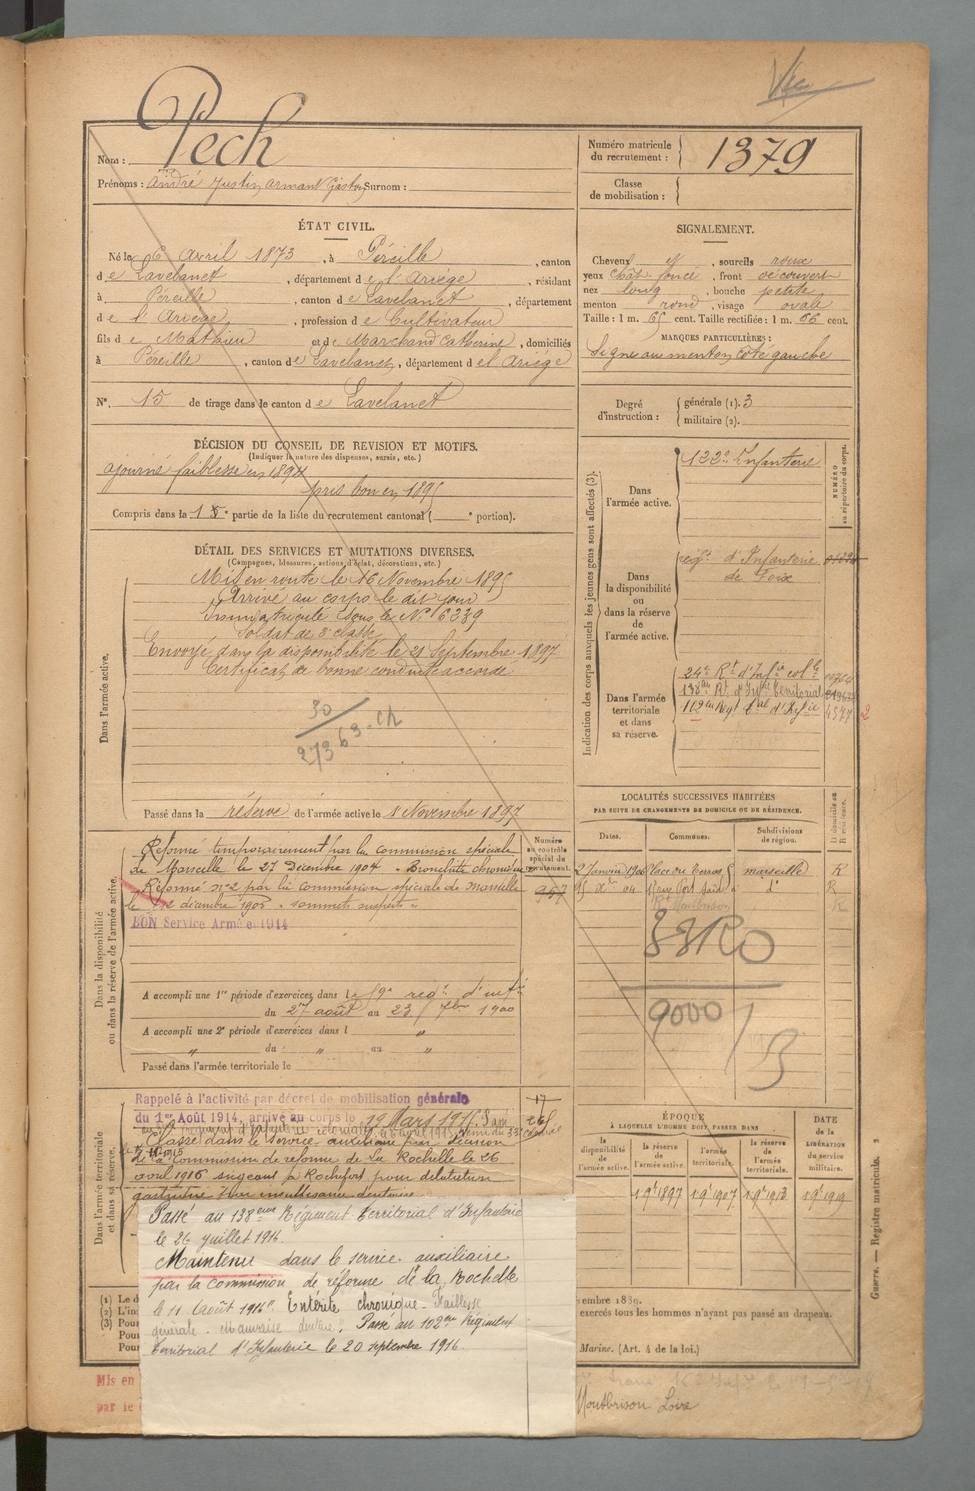 Nom : Pech
Prénoms : André Justin Armant Gaston Surnom :
Numéro matricule du recrutement : 1379
Classe de mobilisation :
ÉTAT CIVIL.
Né le 6 Avril 1873, à Péreille, canton
de Lavelanet, département de l'Ariège, résidant
à Péreille, canton de Lavelanet, département
de l'Ariège, profession de Cultivateur
fils de Mathieu et de Marchand Catherine, domiciliés
à Péreille, canton de Lavelanet, département de l'Ariège
N° 15 de tirage dans le canton de Lavelanet
SIGNALEMENT.
Cheveux et, sourcils roux
yeux chât. foncé, front découvert
nez long, bouche petite
menton rond, visage ovale
Taille : 1 m. 65 cent. Taille rectifiée : 1 m. 66 cent.
MARQUES PARTICULIÈRES :
Signe au menton côté gauche
Degré d'instruction : générale (1). 3
militaire (2).
DÉCISION DU CONSEIL DE REVISION ET MOTIFS.
(Indiquer la nature des dispenses, sursis, etc.)
ajourné faiblesse en 1894
pris bon en 1895
Compris dans la partie de la liste du recrutement cantonal ( portion).
DÉTAIL DES SERVICES ET MUTATIONS DIVERSES.
(Campagnes, blessures, actions d'éclat, décorations, etc.)
Dans l'armée active.
Mis en route le 16 Novembre 1895
Arrivé au corps le dit jour
Immatriculé sous le N° 6239
Soldat de 2e classe
Envoyé dans la disponibilité le 21 Septembre 1897
Certificat de bonne conduite accordé
30
273 63
Passé dans la réserve de l'armée active le 1 Novembre 1897
Indication des corps auxquels les jeunes gens sont affectés (3).
NUMÉRO au répertoire du corps.
Dans l'armée active.
122e Infanterie
Dans la disponibilité ou dans la réserve de l'armée active.
regt d'Infanterie
de Foix
Dans l'armée territoriale et dans sa réserve.
24e Rt d'Infie colle
138e Rt d'Infie territorial
112e Regt tal d'Infie
4577
LOCALITÉS SUCCESSIVES HABITÉES
PAR SUITE DE CHANGEMENTS DE DOMICILE OU DE RÉSIDENCE.
D domicile ou R résidence.
Dates. Communes. Subdivisions de région.
marseille R
15 Xbre 04 rue Port Saïd d° R
Montbrison R
33RO
9000
Dans la disponibilité ou dans la réserve de l'armée active.
Numéro au contrôle spécial du recrutement.
957
Réformé temporairement par la Commission spéciale
de Marseille le 27 Décembre 1904 "Bronchite chronique"
Réformé n°2 par la commission spéciale de Marseille
le décembre 1905 "sommets suspects"
BON Service Armé en 1914
A accompli une 1re période d'exercices dans le regt d'infie
du 27 août au 23 7bre 1900
A accompli une 2e période d'exercices dans l "
" du " au "
Passé dans l'armée territoriale le
Dans l'armée territoriale et dans sa réserve.
Rappelé à l'activité par décret de mobilisation générale
du 1er Août 1914, arrivé au corps le 19 Mars 1915. Passé
Classé dans le service auxiliaire par décision
de la Commission de réforme de la Rochelle le 26
avril 1916 siégeant à Rochefort pour dilatation
gastrique par insuffisance dentaire
Passé au 138eme Régiment territorial d'Infanterie
le 26 juillet 1916.
Maintenu dans le service auxiliaire
par la commission de réforme de la Rochelle
le 11 Août 1916. Entérite chronique - Faiblesse
générale - Mauvaise denture. Passé au 102eme Régiment
territorial d'Infanterie le 20 septembre 1916.
ÉPOQUE
À LAQUELLE L'HOMME DOIT PASSER DANS
DATE de la LIBÉRATION du service militaire.
la disponibilité de l'armée active. la réserve de l'armée active. l'armée territoriale. la réserve de l'armée territoriale.
1 9bre 1897 1 9bre 1907 1 9bre 1913 1 9bre 1919
(1) Le d
(2) L'in
(3) Pour
Pour
Pour
embre 1889.
exercés tous les hommes n'ayant pas passé au drapeau.
Marine. (Art. 4 de la loi.)
Guerre. — Registre matricule.
Mis en
par le
Montbrison Loire